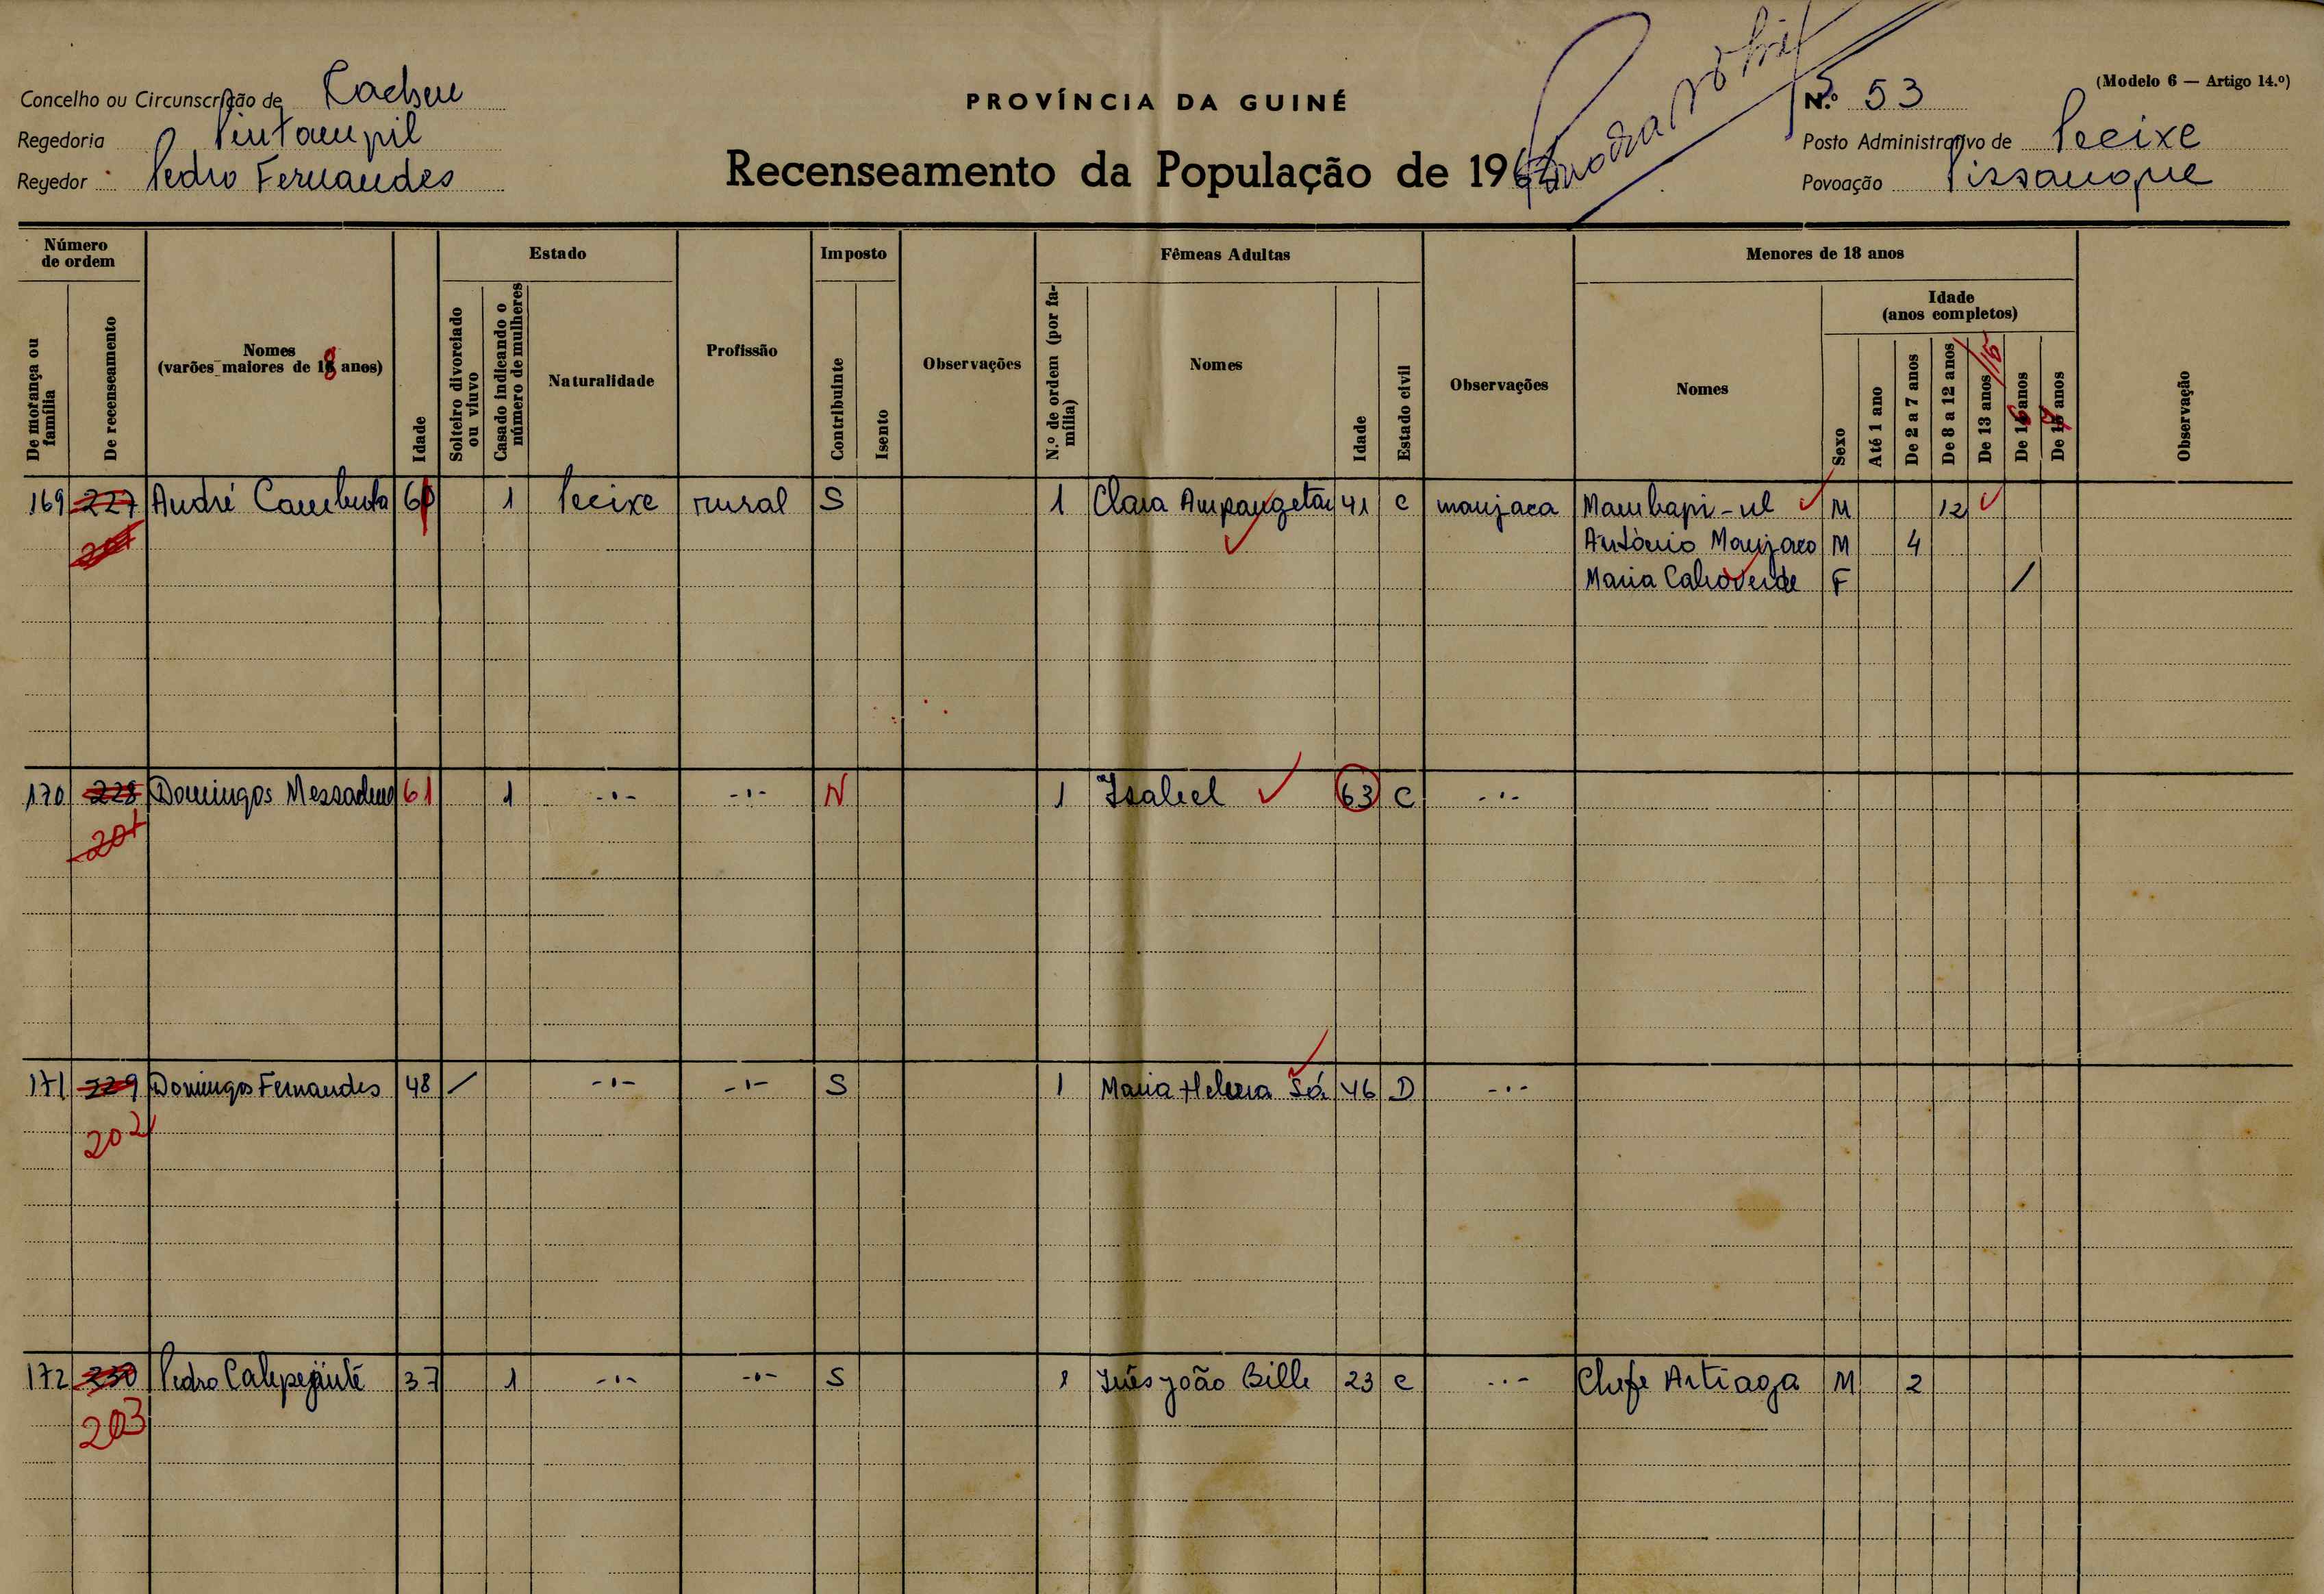 Concelho ou Circunscrição de Cacheu
Regedoria Pintampil
Regedor Pedro Fernandes
PROVÍNCIA DA GUINÉ
Recenseamento da População de 196
(Modelo 6 — Artigo 14.º)
N.º 53
Posto Administrativo de Pecixe
Povoação Pissanque
Número de ordem
De morança ou família
De recenseamento
Nomes
(varões maiores de 18 anos)
Idade
Estado
Solteiro divorciado ou viuvo
Casado indicando o número de mulheres
Naturalidade
Profissão
Imposto
Contribuinte
Isento
Observações
Fêmeas Adultas
N.º de ordem (por família)
Nomes
Idade
Estado civil
Observações
Menores de 18 anos
Nomes
Sexo
Idade
(anos completos)
Até 1 ano
De 2 a 7 anos
De 8 a 12 anos
De 13 anos /15
De 16 anos
De 17 anos
Observação
169 227 André Cambuta 1 Pecixe rural S 1 Clara Ampangetan 41 C manjaca Mambapi-ul M 12
António Manjaco M 4
Maria Caboverde F /
170 228 Domingos 61 1 -ı- -ı- N 1 Isabel 63 C -ı-
201
171 229 Domingos Fernandes 48 / -ı- -ı- S 1 Maria Helena Sá 46 D -ı-
202
172 230 Pedro 37 1 -ı- -ı- S 1 Inês João Bille 23 C -ı- Chefe Artiaga M 2
203